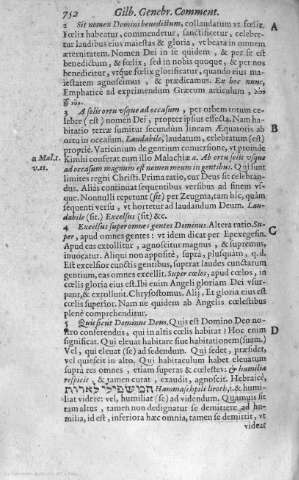 752 Gilb. Genebr. Comment.
2 Sit nomen Domini benedictum, collaudatum vt fœlix. A
Fœlix habeatur, commendetur, sanctificetur, celebre-
tur laudibus eius maiestas & gloria, vt beata in omnem
æternitatem. Nomen Dei in se quidem, & per se est
benedictum, & fœlix, sed in nobis quoque, & per nos
benedicitur, vtque fœlix glorificatur, quando eius ma-
iestatem agnoscimus, & prædicamus. Ex hoc nunc,
Emphaticè ad exprimendum Græcum articulum,
3 A solis ortu vsque ad occasum, per orbem totum ce-
lebre (est) nomen Dei, propter ipsius effecta. Nam ha-
bitatio terræ sumitur secundùm lineam Æquatoris ab B
ortu in occasum. Laudabile, laudatum, celebratum (est)
propriè. Vaticinium de gentium conuersione, vt proinde
a Mal.1. Kimhi conferat cum illo Malachiæ a. Ab ortu solis vsque
v.11. ad occasum magnum est nomen meum in gentibus. Qui sunt
limites regni Christi. Prima ratio, cur Deus sit celebran-
dus. Alias continuat sequentibus versibus ad finem vs-
que. Nonnulli repetunt (sit) per Zeugma, tam hîc, quàm
sequenti versu, vt hortetur ad laudandum Deum. Lau-
dabile (sit.) Excelsus (sit) &c.
4 Excelsus super omnes gentes Dominus. Altera ratio. Su- C
per, apud omnes gentes: vt idem dicat per Epexegesin.
Apud eas extollitur, agnoscitur magnus, & supremus,
inuocatur. Aliqui non appositè, supra, plusquam, q. d.
Est excelsior cunctis gentibus, superat laudes cunctarum
gentium, eas omnes excellit. Super cœlos, apud cœlos, in
cœlis gloria eius est. Ibi enim Angeli gloriam Dei vsur-
pant, & extollunt. Chrysostomus. Alij, Et gloria eius est
cœlis superior. Nam ne quidem ab Angelis cœlestibus
plenè comprehenditur.
5 Quis sicut Dominus Deus. Quis est Domino Deo no-
stro conferendus, qui in altis cœlis habitat? Hoc enim D
significat. Qui eleuat habitare siue habitationem (suam.)
Vel, qui eleuat (se) ad sedendum. Qui sedet, præsidet,
vel quiescit in alto. Qui habitaculum habet eleuatum
supra res omnes, etiam superas & cœlestes: & humilia
respicit, & tamen curat, exaudit, agnoscit. Hebraicè,
המשפילי לראות Hammaschpili liroth, & humi-
liat videre: vel, humiliat (se) ad videndum. Quamuis sit
tam altus, tamen non dedignatur se demittere ad hu-
milia, id est, inferiora hæc omnia, tamen se demittit, vt
videat